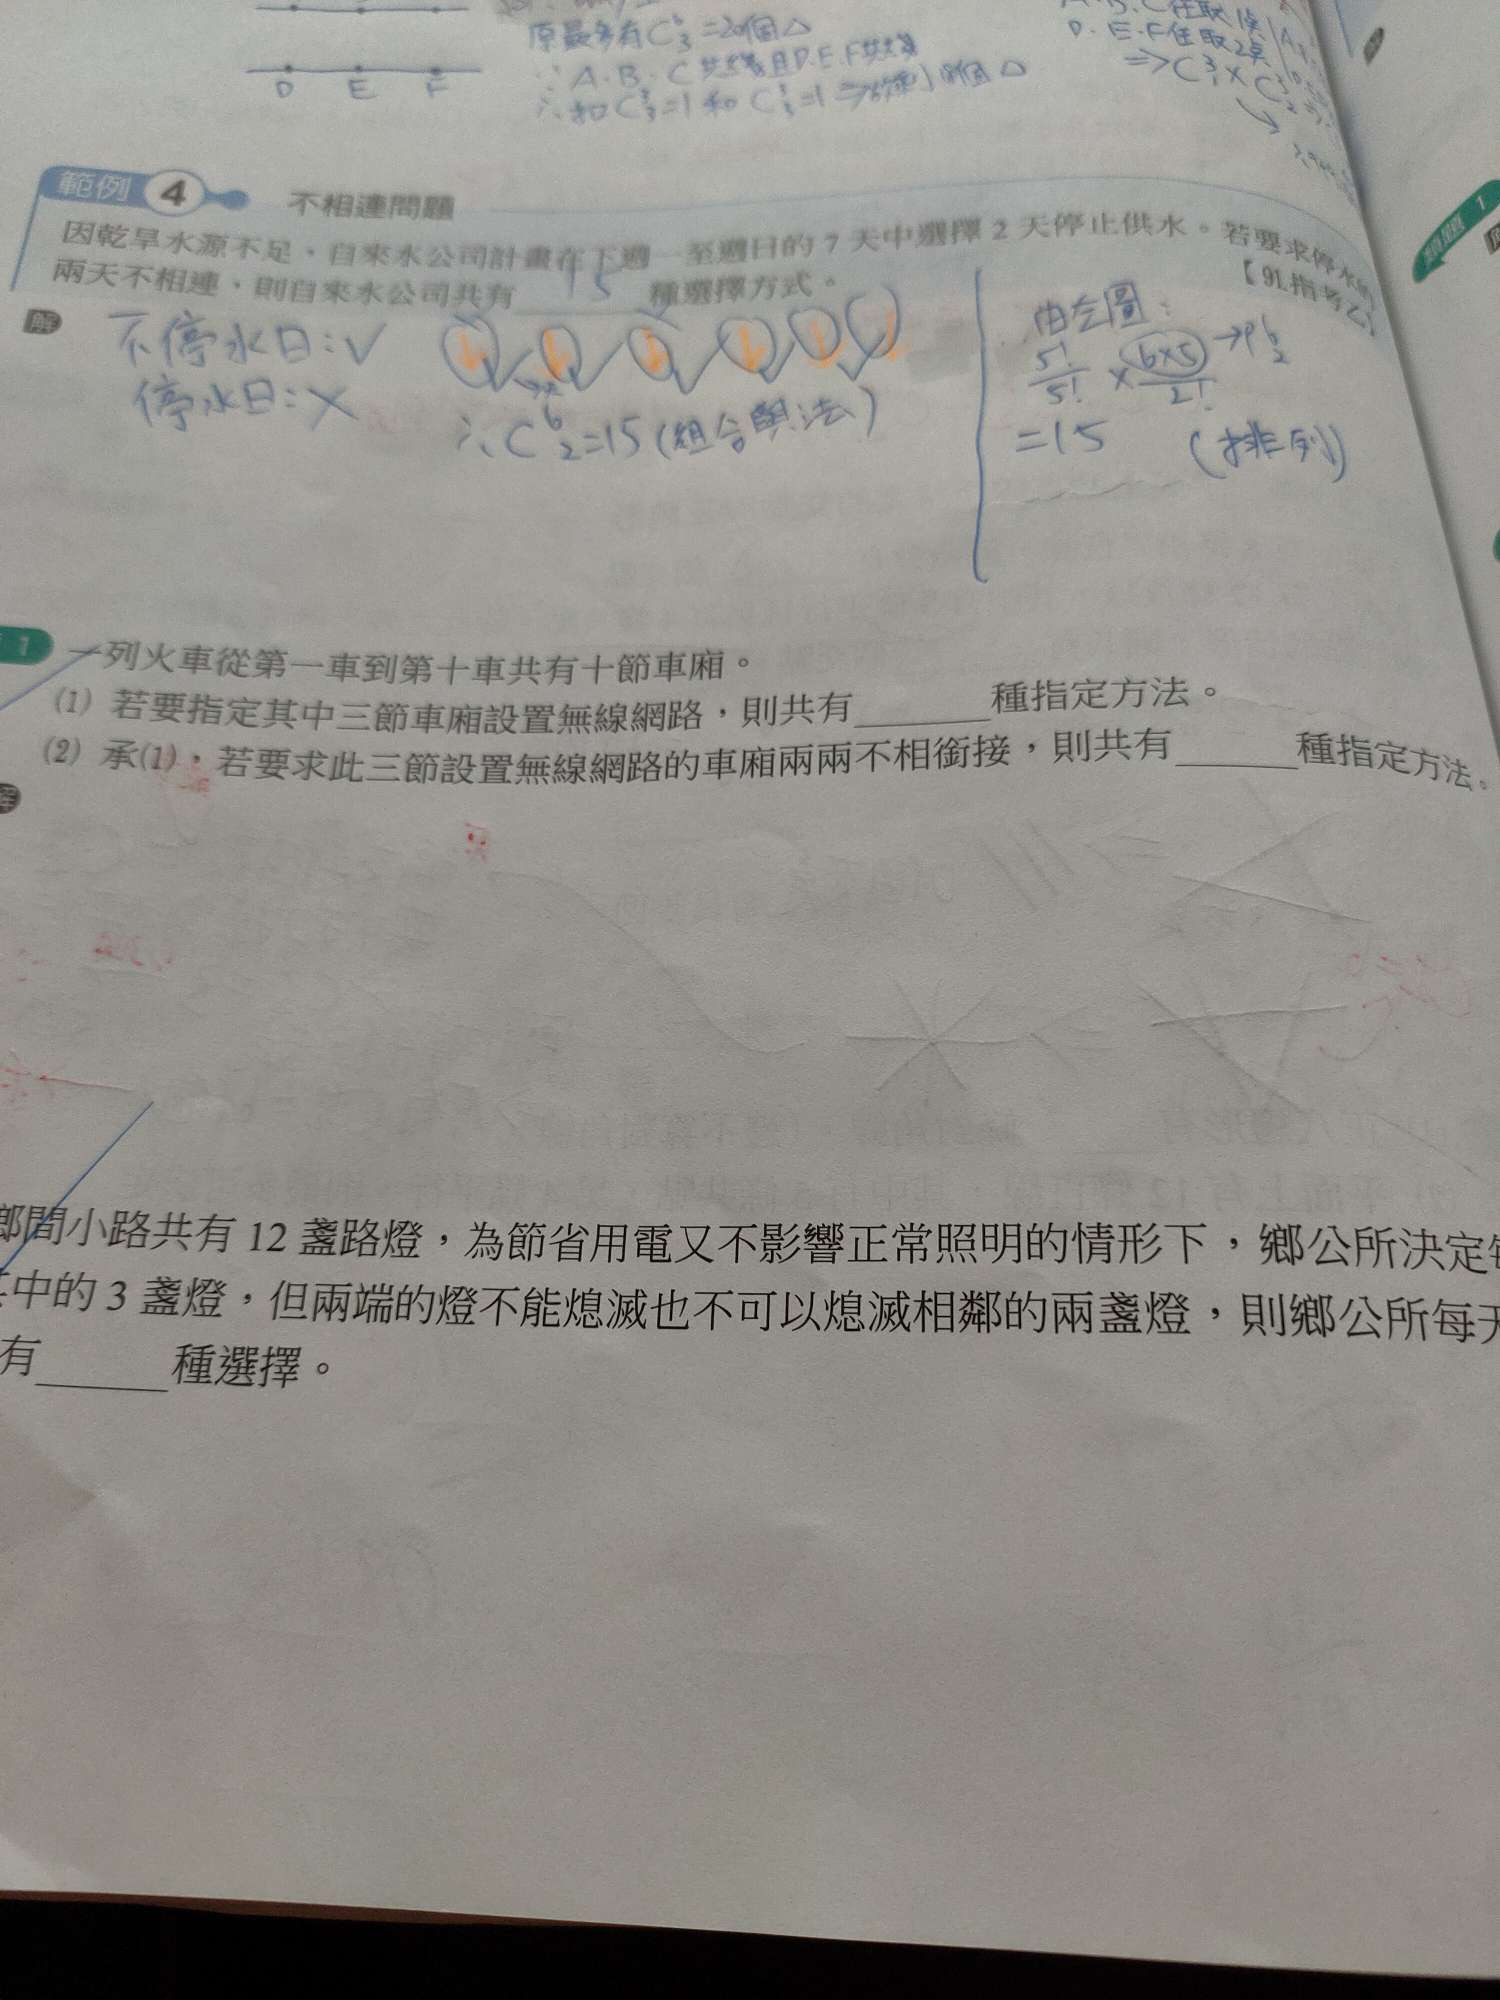 原最多有C⁶₃=20個△
∵A、B、C共線且D、E、F共線
D E F
∴扣C³₃=1和C³₃=1
A、B、C任取1點
D、E、F任取2點
⇒C³₁×C³₂
範例 4 不相連問題
因乾旱水源不足，自來水公司計畫在下週一至週日的 7 天中選擇 2 天停止供水。若要求停水的
兩天不相連，則自來水公司共有 15 種選擇方式。
【91.指考乙】
解
不停水日：✓
停水日：×
∴C⁶₂=15(組合與法)
5!/5! × 6×5/2! →P⁶₂
=15 (排列)
類題 1
1 一列火車從第一車到第十車共有十節車廂。
(1) 若要指定其中三節車廂設置無線網路，則共有______種指定方法。
(2) 承(1)，若要求此三節設置無線網路的車廂兩兩不相銜接，則共有______種指定方法。
解
鄉間小路共有 12 盞路燈，為節省用電又不影響正常照明的情形下，鄉公所決定
中的 3 盞燈，但兩端的燈不能熄滅也不可以熄滅相鄰的兩盞燈，則鄉公所每天
有______種選擇。